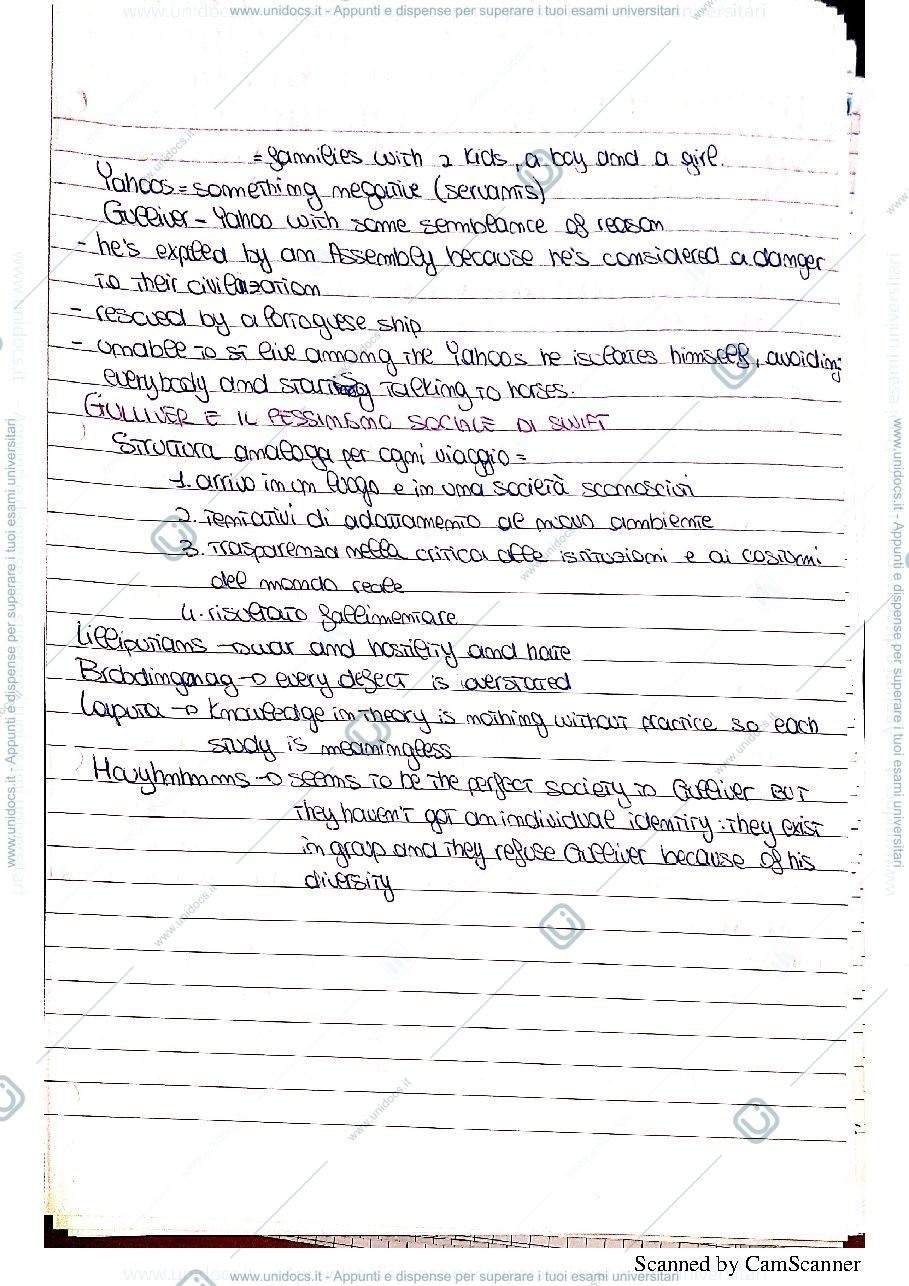 www.unidocs.it - Appunti e dispense per superare i tuoi esami universitari
= families with 2 kids, a boy and a girl.
Yahoos = something negative (servants)
Gulliver - Yahoo with some semblance of reason
- he's expled by an Assembly because he's considered a danger
to their civilization
- rescued by a Portoguese ship
- unable to st live among the Yahoos he isolates himself, avoiding
everybody and starting talking to horses.
GULLIVER E IL PESSIMISMO SOCIALE DI SWIFT
Struttura analoga per ogni viaggio =
1. arrivo in un luogo e in una società sconosciuti
2. tentativi di adattamento al nuovo ambiente
3. trasparenza nella critica alle istituzioni e ai costumi
del mondo reale
4. risultato fallimentare
Lilliputians → war and hostility and hate
Brobdingnag → every defect is overstated
Laputa → knowledge in theory is nothing without practice so each
study is meaningless
Houyhnhnms → seems to be the perfect society to Gulliver BUT
they haven't got an individual identity: they exist
in group and they refuse Gulliver because of his
diversity
Scanned by CamScanner
www.unidocs.it - Appunti e dispense per superare i tuoi esami universitari